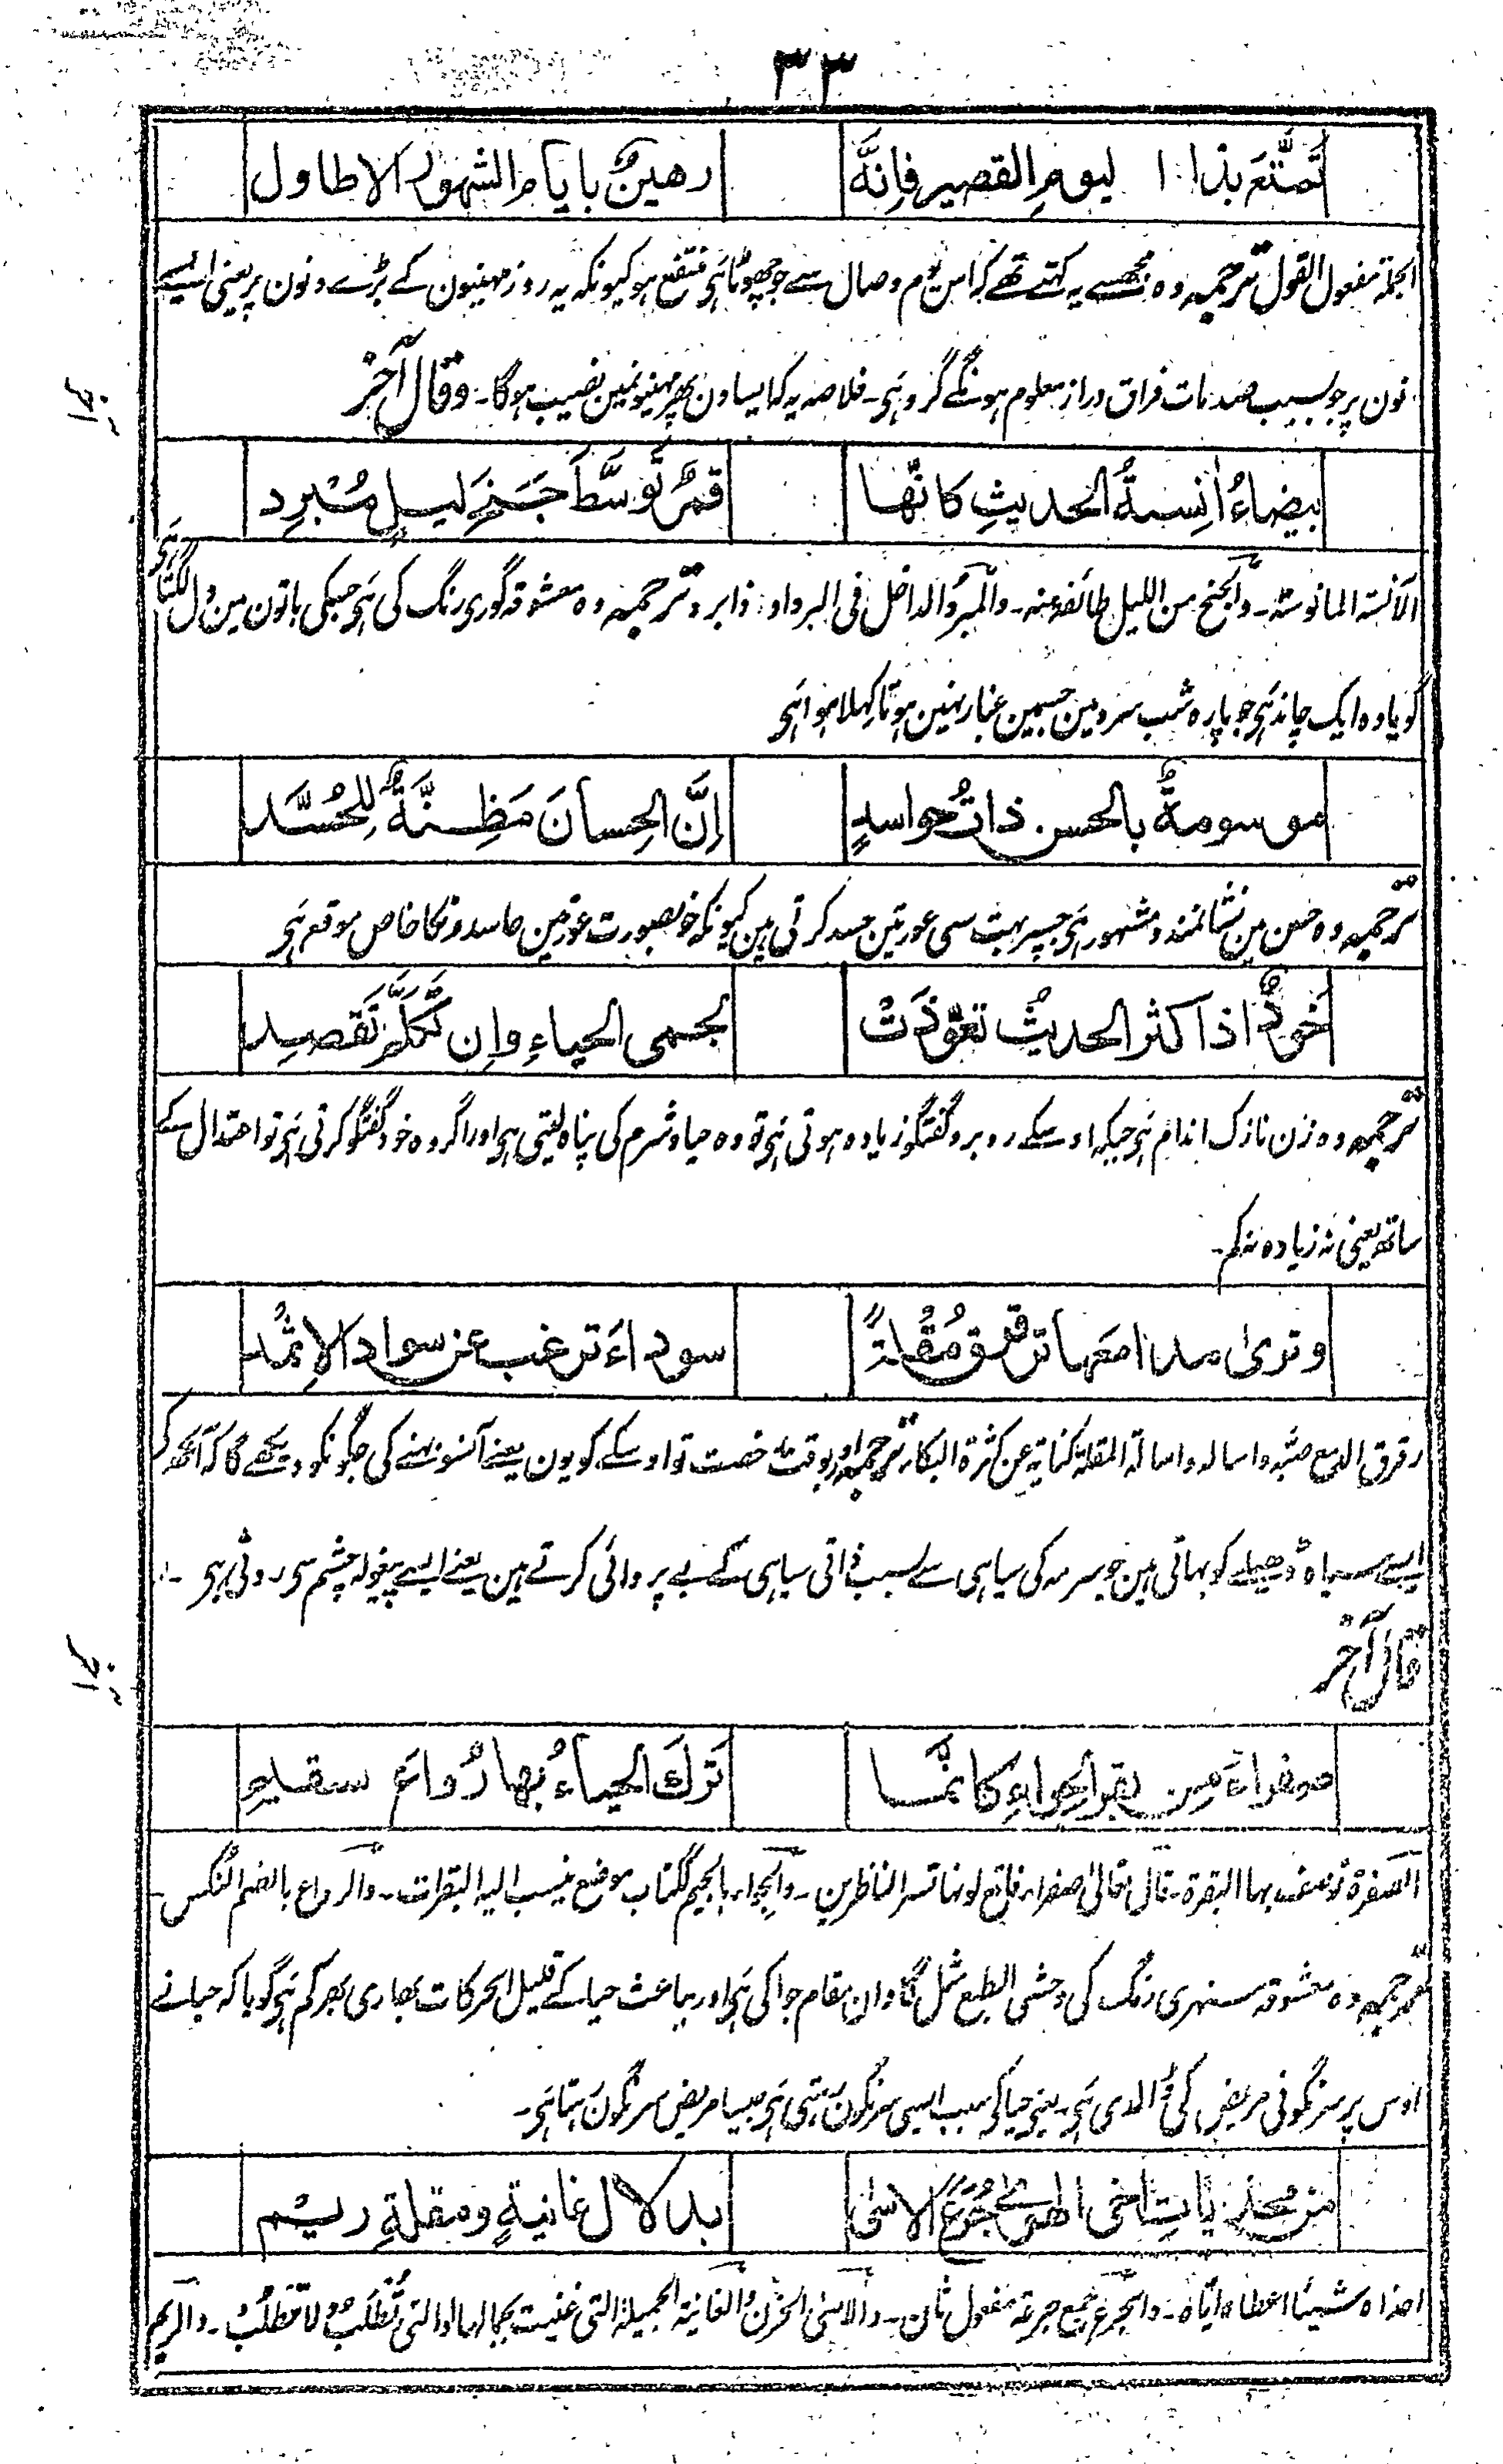 ٣٣
تَمَتَّعْ بذا اليومِ القصيرِ فإنَّهُ رهينٌ بايام الشهور الاطاول
الجملة مفعول القول ترجمہ وہ مجھسے یہ کہتے تھے کہ اس یوم وصال سے جو چھوٹا ہی منتفع ہو کیونکہ یہ روز مہینون کے بڑے دنون پر یعنی ایسے
دنون پر جو بسبب صدمات فراق دراز معلوم ہونگے گرو ہی۔ خلاصہ یہ کہ ایسا دن پھر مہینونمین نصیب ہوگا۔ وقال آخر
بيضاءُ اٰنسةُ الحديثِ كانّها قمرٌ توسَّطَ جنحَ ليلٍ مُبْرِد
الآنسة المانوسة۔ والجنح من الليل طائفة منه۔ والمبرد الداخل فی البرد او ذا برد ترجمہ وہ معشوقہ گوری رنگ کی ہی جسکی باتون مین دل لگتا ہی
گویا وہ ایک چاند ہی جو پارہ شب سرد مین جسمین غبار نہین ہوتا کہلا ہوا ہی
موسومةٌ بالحسن ذاتُ حواسدٍ إنَّ الحِسانَ مَظِنَّةٌ لِلحُسَّد
ترجمہ وہ حسن مین نشانمند و مشہور ہی جسپر بہت سی عورتین حسد کرتی ہین کیونکہ خوبصورت عورتین حاسدونکا خاص موقع ہی
خَودٌ اذا كثر الحديثُ تعوّذَتْ بحمى الحياءِ وان تَكَلَّمْ تَقصِد
ترجمہ وہ زن نازک اندام ہی جبکہ اوسکے روبرو گفتگو زیادہ ہوتی ہی تو وہ حیا و شرم کی پناہ لیتی ہی اور اگر وہ خود گفتگو کرتی ہی تو اعتدال کے
ساتھ یعنی نہ زیادہ نہ کم۔
وترىٰ مدامعها ترقرق مُقلةً سوداءَ ترغب عن سواد الاثمُد
رقرق الدمع صبّه واساله واسالة المقلة كناية عن كثرة البكاء ترجمہ اور بوقت رخصت تو اوسکے کویون یعنے آنسو بہنے کی جگہونکو دیکھے گا کہ آنکھ کے
ایسے سیاہ ڈھیلے کو بہاتی ہین جو سرمہ کی سیاہی سے بسبب ذاتی سیاہی کے بے پروائی کرتے ہین یعنے ایسے پیغولہ چشم سی روتی ہی۔
قال آخر
صفراءُ من بقر الجواءِ كانما تَركَ الحياءُ بها رُداعَ سقيم
الصفرة توصف بها البقرة۔ قال تعالیٰ صفراء فاقع لونها تسر الناظرين۔ والجواء بالجيم ككتاب موضع ينسب اليه البقرات۔ والرداع بالضم النكس۔
ترجمہ وہ معشوقہ سنہری رنگ کی وحشی الطبع مثل گاوان مقام جوا کی ہی اور بباعث حیا کے قلیل الحرکات بھاری بھرکم ہی گویا کہ حیا نے
اوس پر سرنگونی مریض کی ڈالدی ہی۔ یعنی حیا کی سبب ایسی سرنگون رہتی ہی جیسا مریض سرنگون رہتا ہی۔
من محذياتِ اخى الهوىٰ جُرَعَ الاسىٰ بدلال غانيةٍ ومقلةِ ريم
احذاه شيئا اعطاه اياه۔ والجرع جمع جرعة مفعول ثان۔ والاسىٰ الحزن والغانية الجميلة التی غنيت بجمالها او التی تُطلَبُ ولا تَطلُبُ۔ والريم